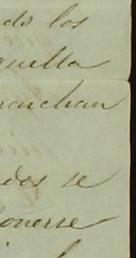 do los
quella
marchan
dos se
onerse